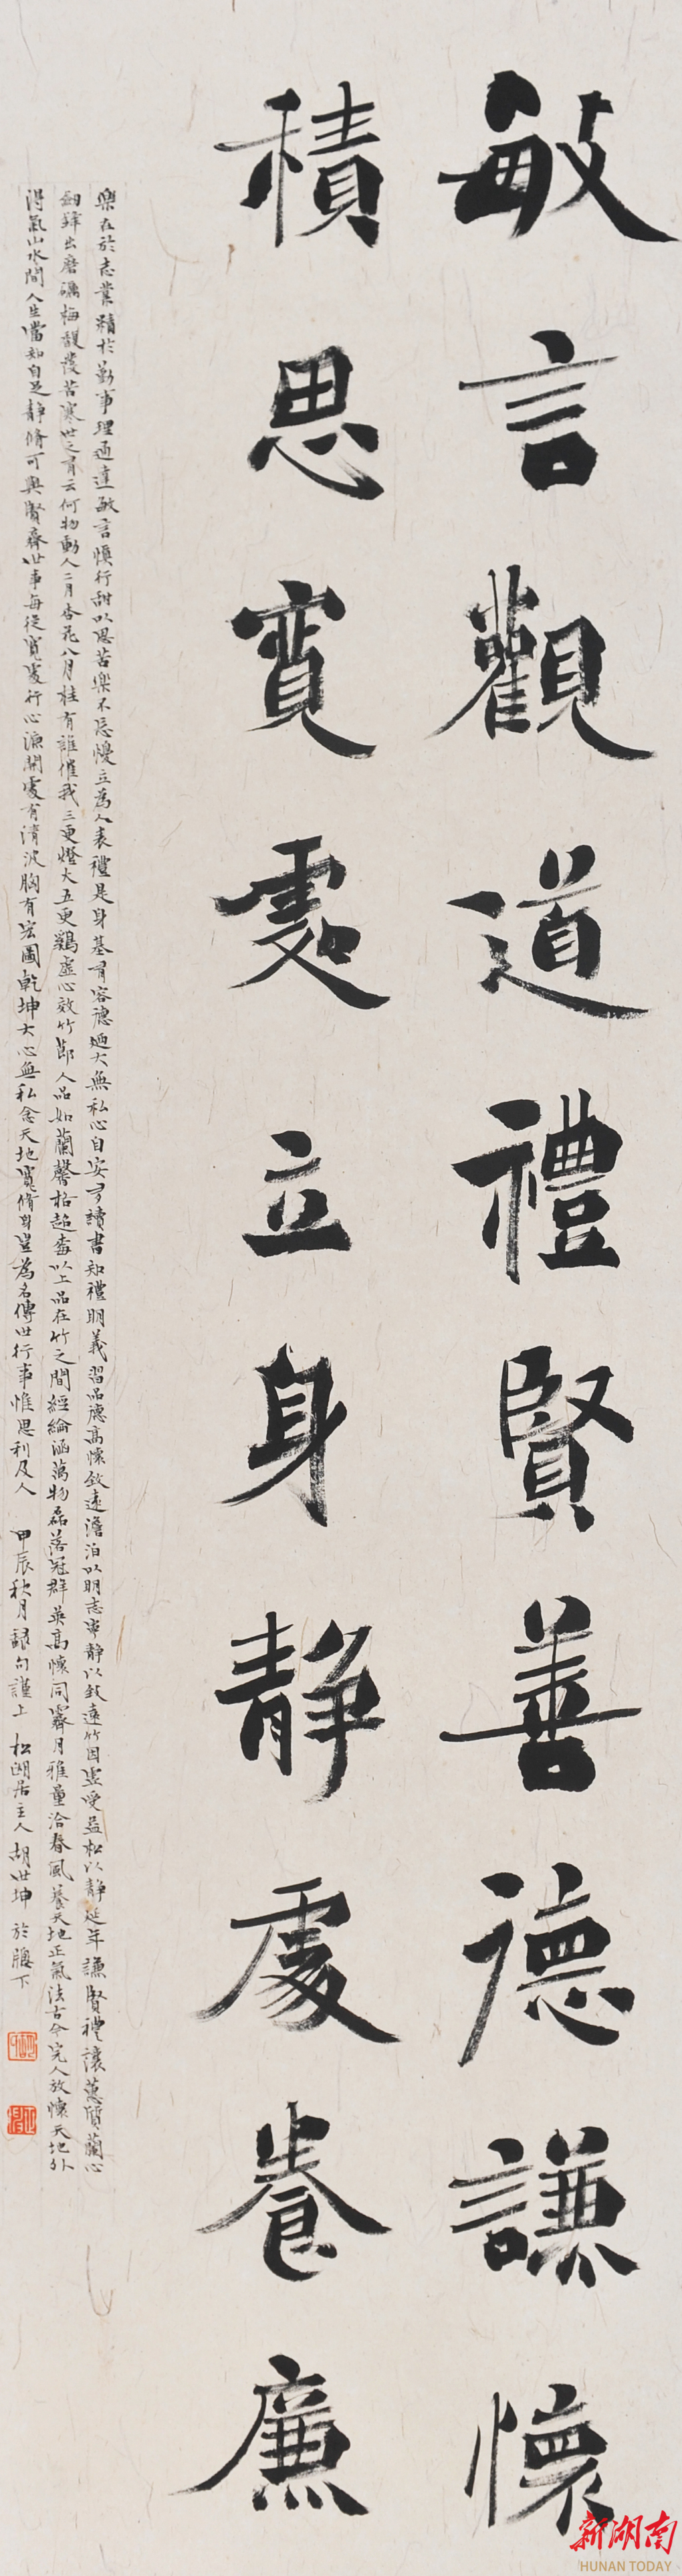 敏言觀道禮賢善德謙懷
積思寬處立身靜處養廉
樂在於志業精於勤事理通達敏言慎行甜以思苦樂不忘憂立為人表禮是身基有容德迺大無私心自安可讀書知禮明義習品德高懷致遠澹泊以明志寧靜以致遠竹因虛受益松以靜延年謙賢禮讓蕙質蘭心
劍鋒出磨礪梅馥發苦寒世之有云何物動人二月杏花八月桂有誰催我三更燈火五更鷄虛心效竹節人品如蘭馨格超梅以上品在竹之間經綸涵萬物磊落冠群英高懷同霽月雅量洽春風養天地正氣法古今完人放懷天地外
得氣山水間人生當知自足靜脩可與賢齊世事每從寬處行心源開處有清波胸有宏圖乾坤大心無私念天地寬脩身豈為名傳世行事惟思利及人 甲辰秋月 録句謹上 松湖居主人 胡世坤 於牕下
新湖南
HUNAN TODAY